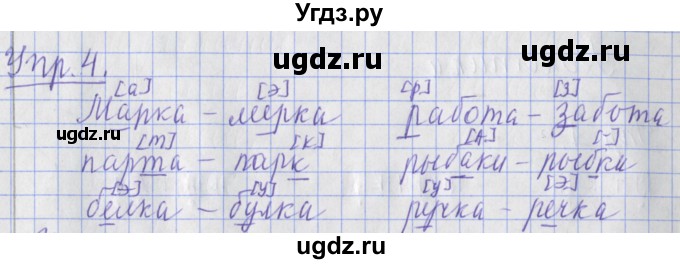 Угдз.ру
Упр. 4.
[а] [э] [р] [з]
Марка – мерка работа – забота
[т] [к] [А] [-]
парта – парк рыбаки – рыбки
[э] [у] [у] [э]
белка – булка ручка – речка
ugdz.ru ugdz.ru
ugdz.ru ugdz.ru
ugdz.ru ugdz.ru